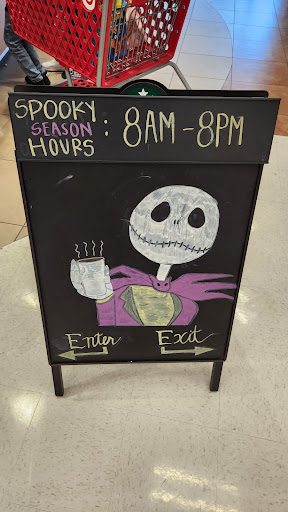 SPOOKY
SEASON : 8AM - 8PM
HOURS
Enter Exit